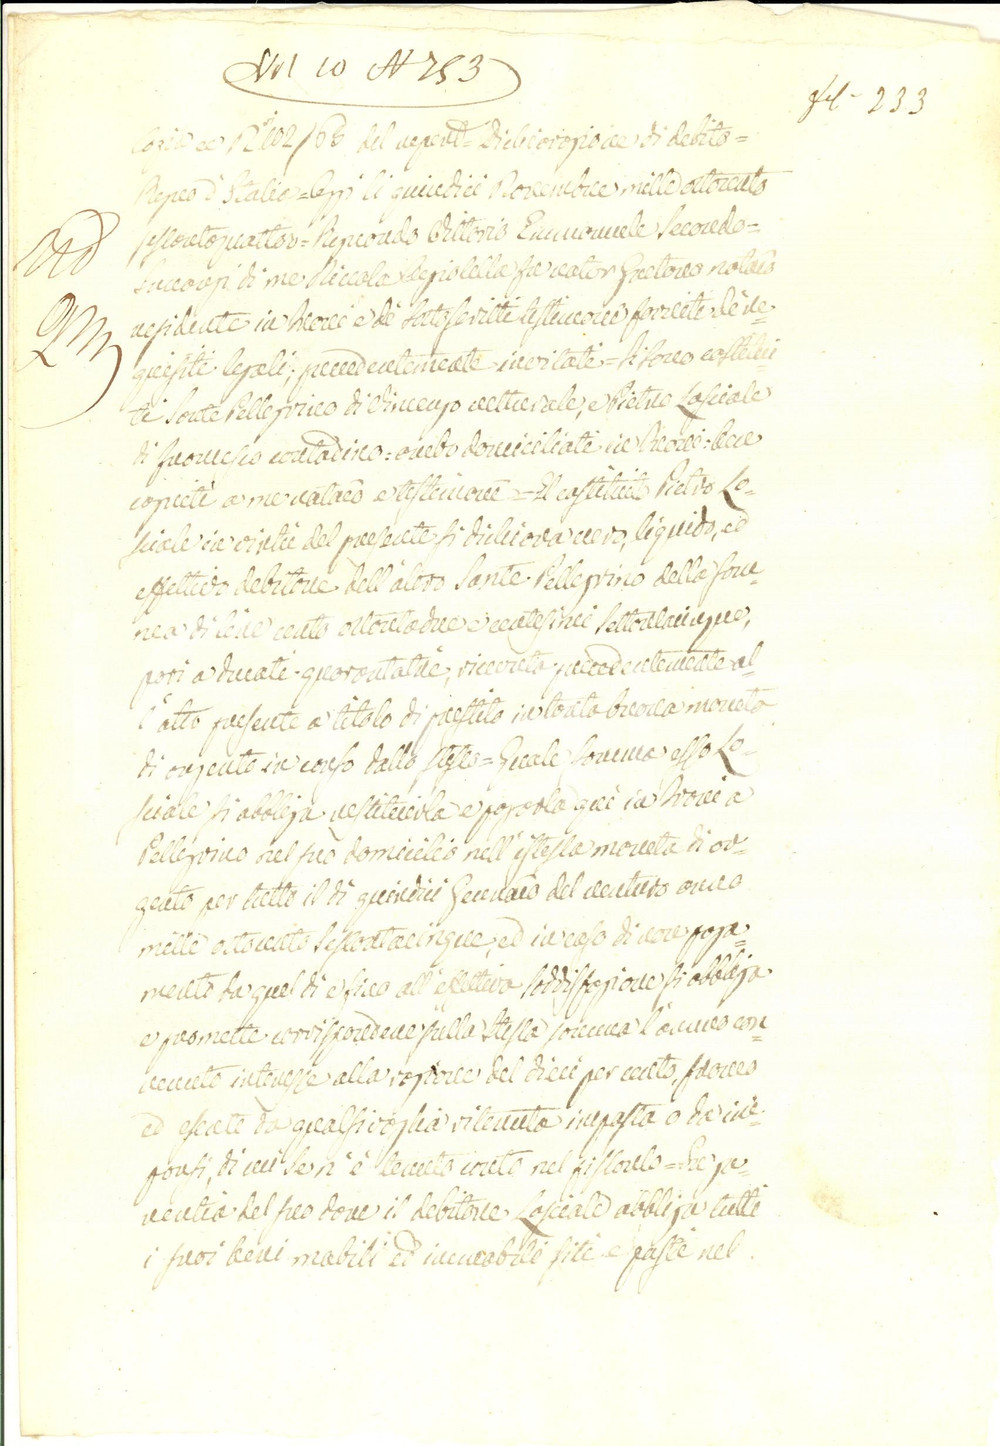 Vol 10 N 253
fol- 233
Copia N° 202 del repert= Dichiarazione di debito=
Regno d'Italia=Oggi li quindici Novembre mille ottocento
sessantaquattro= Regnando Vittorio Emmanuele Secondo=
Innanzi di me Niccola notaro
residente in e de' sottoscritti testimoni forniti de' re=
quisiti legali, precedentemente invitati= Si sono costitui=
ti Sante Pellegrino di Vincenzo vetturale, e Pietro Lasciale
di Francesco contadino= ambo domiciliati in bene
cogniti a me notaro e testimoni= Il costituito Pietro La=
sciale in virtù del presente si dichiara vero, liquido, ed
effettivo debitore dell'altro Sante Pellegrino della som=
ma di lire cento ottantadue e centesimi settantacinque,
pari a ducati quarantatrè, ricevuta precedentemente al=
l'atto presente a titolo di prestito in tanta buona moneta
di argento in corso dallo stesso= Quale somma esso La=
sciale si obbliga restituirla e pagarla qui in a
Pellegrino nel suo domicilio nell'istessa moneta di ar=
gento per tutto il dì quindici Gennaio del venturo anno
mille ottocento sessantacinque, ed in caso di non paga=
mento da quel dì e sino all'effettiva soddisfazione si obbliga
e promette corrispondere sulla stessa somma l'annuo con=
venuto interesse alla ragione del dieci per cento, franco
ed esente da qualsivoglia ritenuta imposta o da im=
porsi, di cui se n'è tenuto conto nel fissarlo= In ga=
rentia del suo dare il debitore Lasciale obbliga tutti
i suoi beni mobili ed immobili siti e posti nel